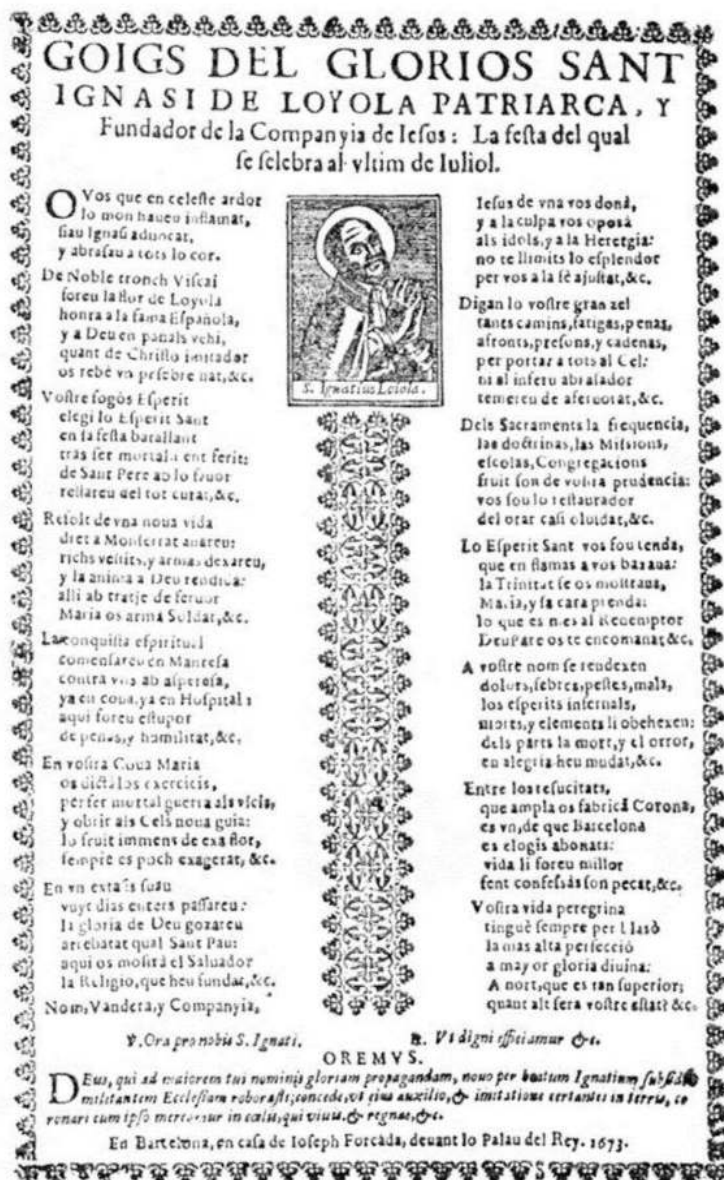 GOIGS DEL GLORIOS SANT
IGNASI DE LOYOLA PATRIARCA, Y
Fundador de la Companyia de Iesus: La festa del qual
se selebra al vltim de Iuliol.
O Vos que en celeste ardor
lo mon haueu inflamat,
siau Ignasi aduocat,
y abrasau a tots lo cor.
De Noble tronch Viscai
foreu la flor de Loyola
honra a la fama Española,
y a Deu en panals vehi,
quant de Christo imitador
os rebè vn pesebre nat, &c.
Vostre fogòs Esperit
elegi lo Esperit Sant
en sa festa batallant
tras ser mortalment ferit:
de Sant Pere ab lo fauor
restareu del tot curat, &c.
Resolt de vna noua vida
dret a Monserrat anareu:
richs vestits, y armas dexareu,
y la anima a Deu rendida:
alli ab tratje de feruor
Maria os armà Soldat, &c.
La conquista espiritual
comensareu en Manresa
contra vos ab aspresa,
ya en coua, ya en Hospital:
aqui foreu estupor
de penas, y humilitat, &c.
En vostra Coua Maria
os dictà los exercicis,
per fer mortal guerra als vicis,
y obrir als Cels noua guia:
lo fruit immens de exa flor,
sempre es poch exagerat, &c.
En vn extasis suau
vuyt dias enters passareu:
la gloria de Deu gozareu
arrebatat qual Sant Pau:
aqui os mostrà el Saluador
la Religio, que heu fundat, &c.
Nom, Vandera, y Companyia,
S. Ignatius Loiola.
Iesus de vna vos donà,
y a la culpa vos oposà
als idols, y a la Heretgia:
no te llimits lo esplendor
per vos a la fè ajustat, &c.
Digan lo vostre gran zel
tants camins, fatigas, penas,
afronts, presons, y cadenas,
per portar a tots al Cel:
ni al infern abrasador
temereu de aferuorat, &c.
Dels Sacraments la frequencia,
las doctrinas, las Missions,
escolas, Congregacions
fruit son de vostra prudencia:
vos sou lo restaurador
del orar casi oluidat, &c.
Lo Esperit Sant vos fou tenda,
que en flamas a vos baxaua:
la Trinitat se os mostraua,
Maria, y sa cara prenda:
lo que es mes al Redemptor
Deu Pare os te encomanat &c.
A vostre nom se rendexen
dolors, febres, pestes, mals,
los esperits infernals,
morts, y elements li obehexen:
dels parts la mort, y el orror,
en alegria heu mudat, &c.
Entre los resucitats,
que ampla os fabricà Corona,
es vn, de que Barcelona
es elogis abonats:
vida li foreu millor
fent confessàs son pecat, &c.
Vostra vida peregrina
tinguè sempre per blasò
la mas alta perfecciò
a mayor gloria diuina:
A nort, que es tan superior;
quant alt sera vostre estat? &c.
℣. Ora pro nobis S. Ignati. ℟. Vt digni efficiamur &c.
OREMVS.
DEus, qui ad maiorem tui nominis gloriam propagandam, nouo per beatum Ignatium subsidio
militantem Ecclesiam roborasti; concede, vt eius auxilio, & imitatione certantes in terris, co
ronari cum ipso mereamur in cælis, qui viuis, & regnas, &c.
En Bartelona, en casa de Ioseph Forcada, deuant lo Palau del Rey. 1673.